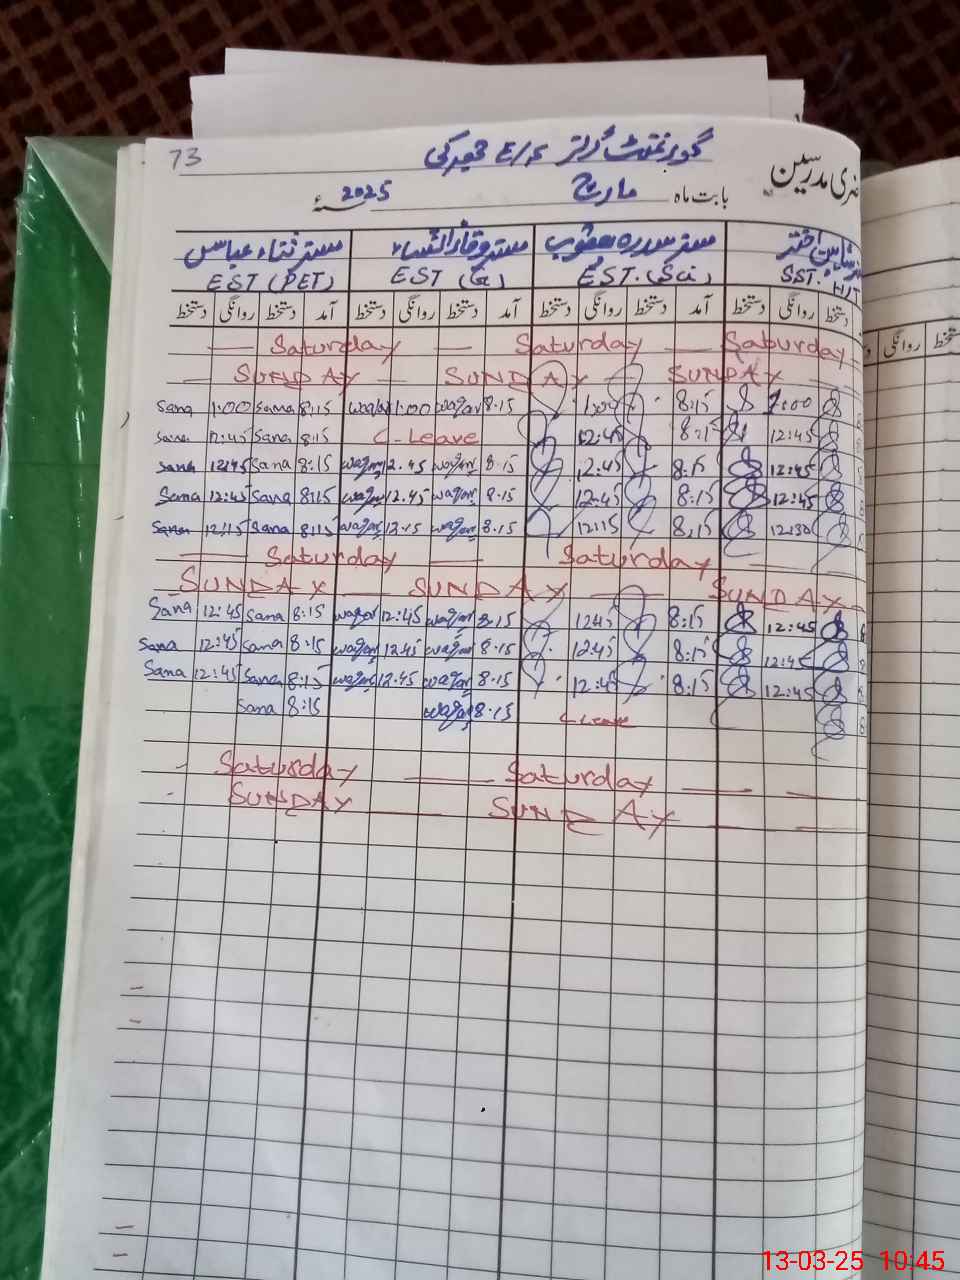 73
گورنمنٹ گرلز E/S
بابت ماہ مارچ 2025
مدرسین
مسز ثناء عباس مسز وقار النساء مسز سدرہ یعقوب
EST (PET) EST (G) EST. (Sci) SST. H/T
دستخط روانگی دستخط آمد دستخط روانگی دستخط آمد دستخط روانگی دستخط آمد دستخط روانگی دستخط
روانگی دستخط
Saturday — Saturday — Saturday
SUNDAY — SUNDAY SUNDAY
Sana 1:00 Sana 8:15 waqar 1:00 waqar 8.15 8:15 1:00
Sana 12:45 Sana 8:15 C-Leave 12:45 8:15 12:45
Sana 12:45 Sana 8:15 waqar 12.45 waqar 8.15 12:45 8:15 12:45
Sana 12:45 Sana 8:15 waqar 12.45 waqar 8.15 12:45 8:15 12:45
Sana 12:15 Sana 8:15 waqar 12.15 waqar 8.15 12:15 8:15 12:30
Saturday — Saturday
SUNDAY — SUNDAY — SUNDAY
Sana 12:45 Sana 8:15 waqar 12:45 waqar 8.15 12:45 8:15 12:45
Sana 12:45 Sana 8:15 waqar 12.45 waqar 8.15 12:45 8:15 12:45
Sana 12:45 Sana 8:15 waqar 12.45 waqar 8.15 12:45 8:15 12:45
Sana 8:15 waqar 8.15 C-Leave
Saturday — Saturday
SUNDAY SUNDAY
13-03-25 10:45